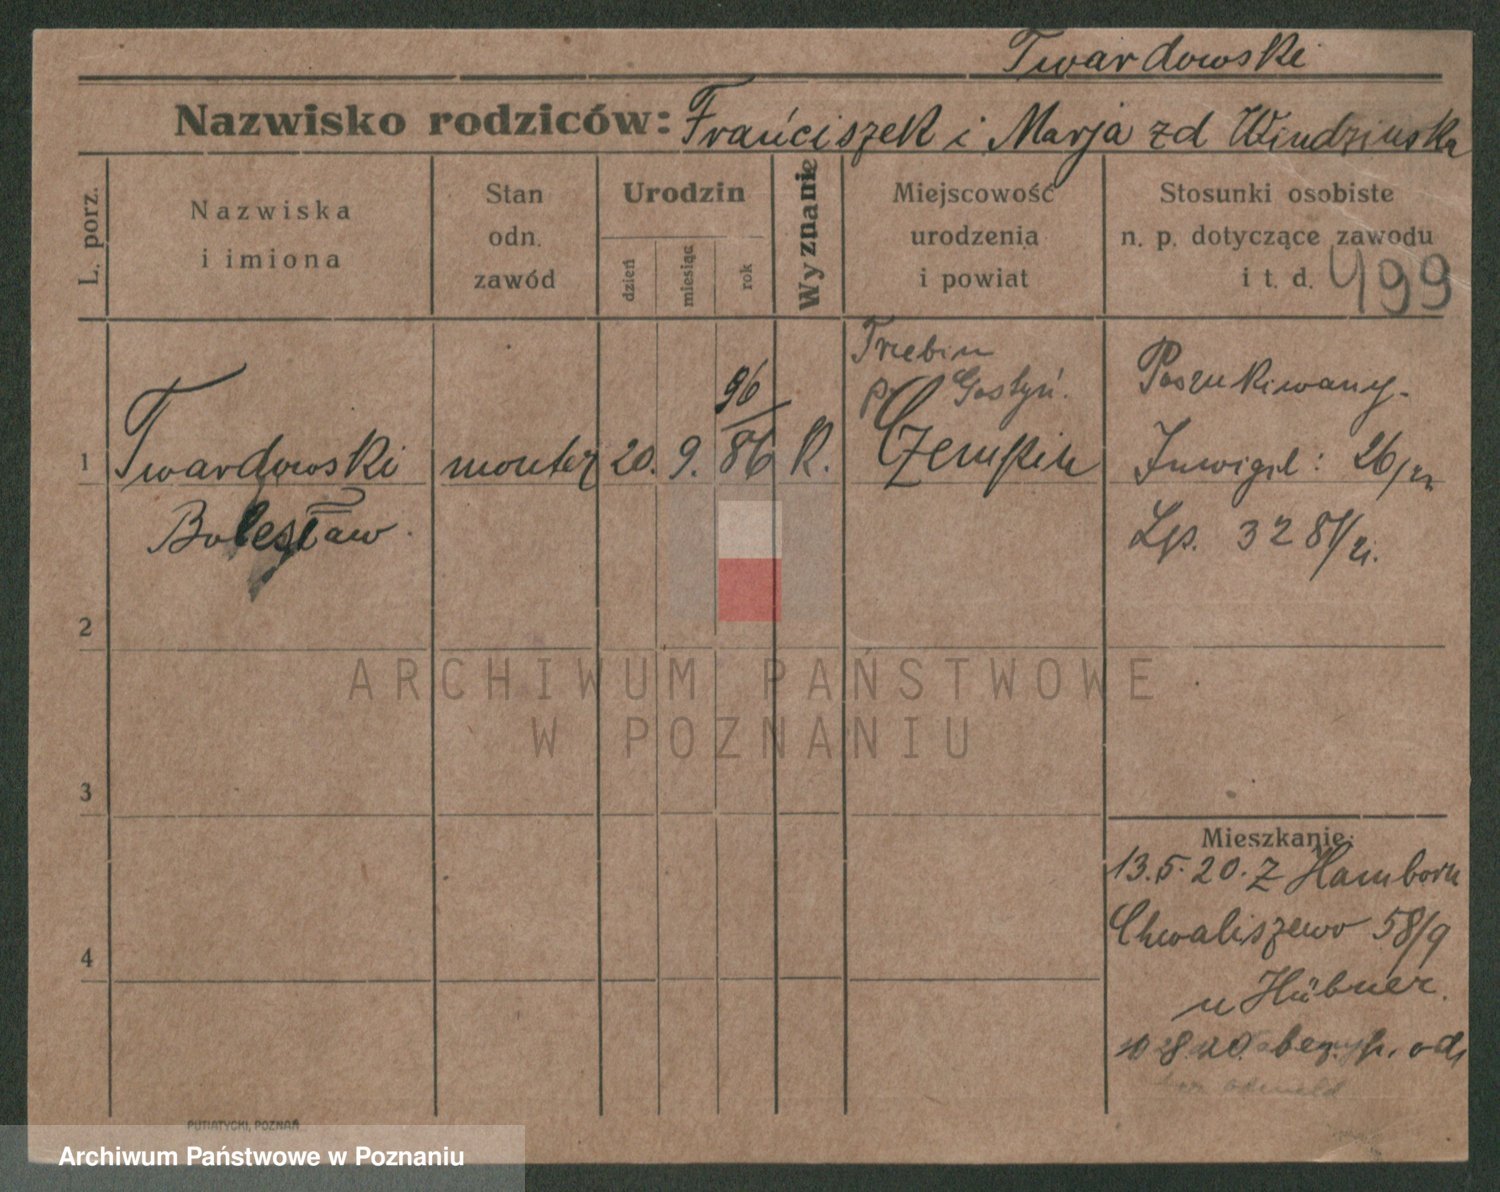 Twardowski
Nazwisko rodziców: Franciszek i Marja zd Wendzinska
L. porz.
Nazwiska
i imiona
Stan
odn.
zawód
Urodzin
dzień
miesiąc
rok
Wyznanie
Miejscowość
urodzenia
i powiat
Stosunki osobiste
n. p. dotyczące zawodu
i t. d. 499
1
Twardowski
Bolesław
monter
20.
9.
96
86
K.
Trzebin
p. Gostyń.
Czempin
Poszukiwany.
Inwigil: 26/21
Lgs. 328/21.
2
3
4
Mieszkanie:
13.5.20. z Hamborn
Chwaliszewo 58/9
u Hübner.
20.
PUTIATYCKI, POZNAŃ
ARCHIWUM PAŃSTWOWE
W POZNANIU
Archiwum Państwowe w Poznaniu